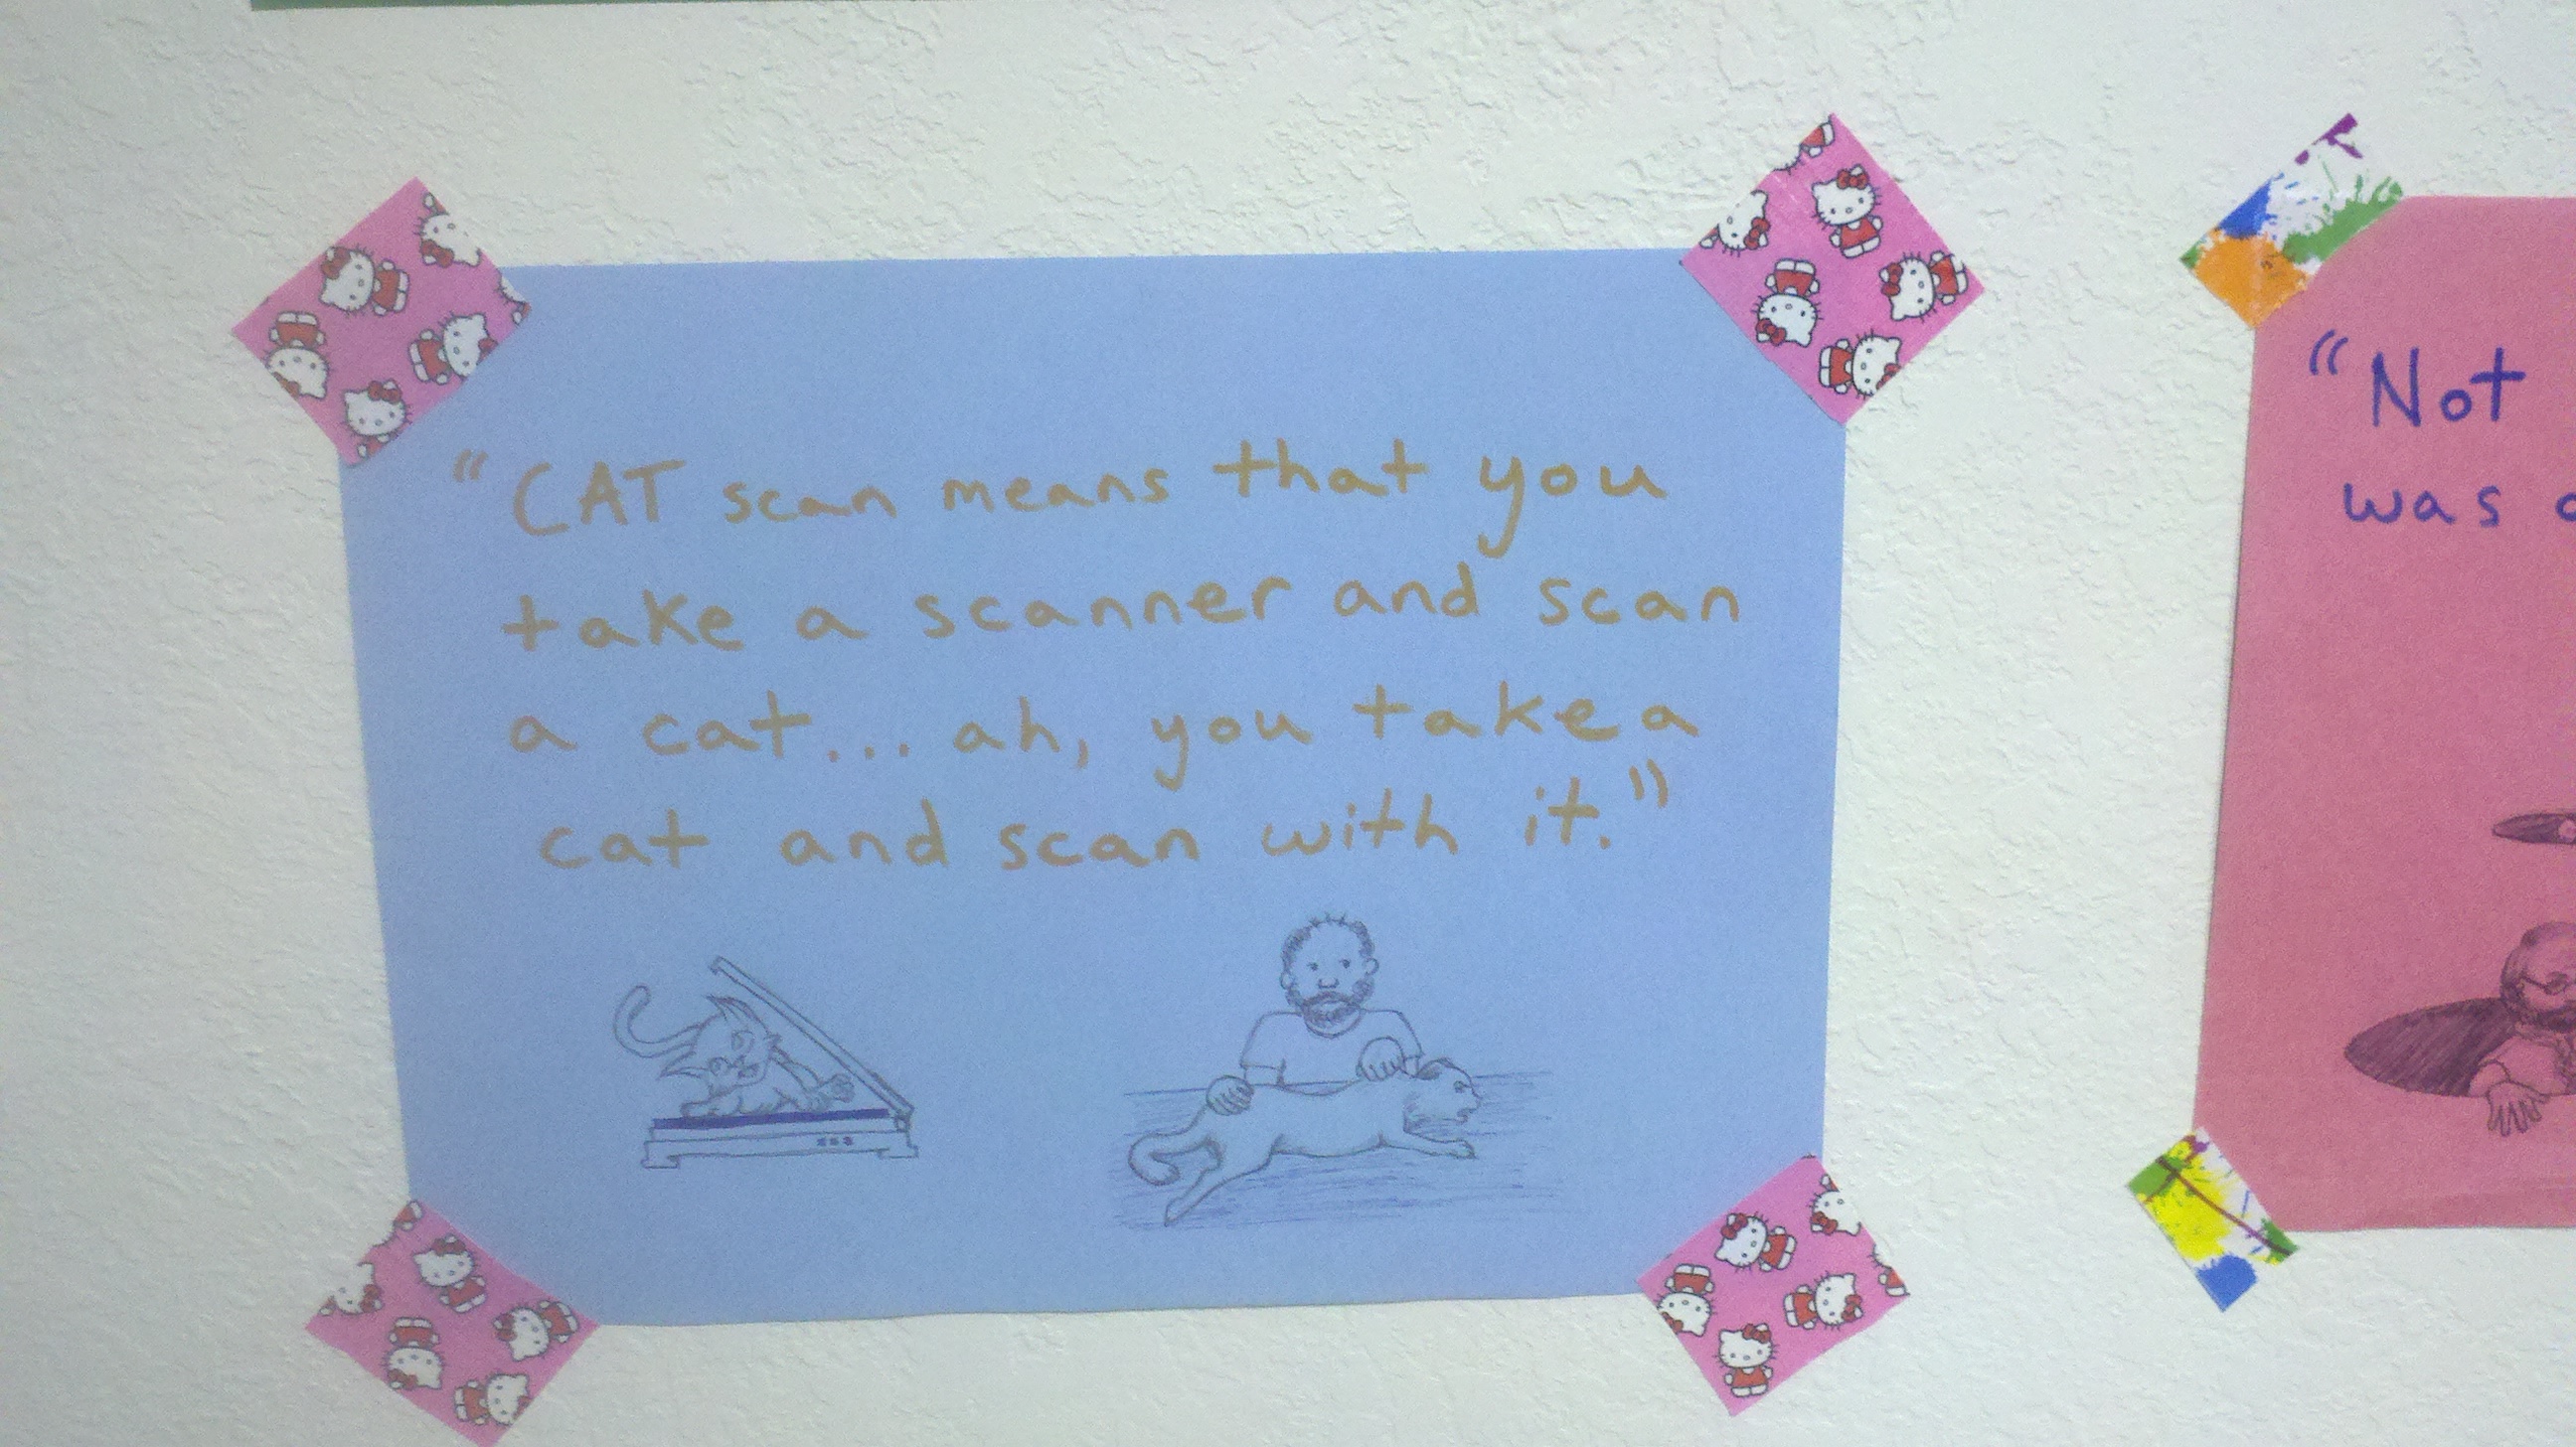 “CAT scan means that you
take a scanner and scan
a cat... ah, you take a
cat and scan with it.”
“Not
was